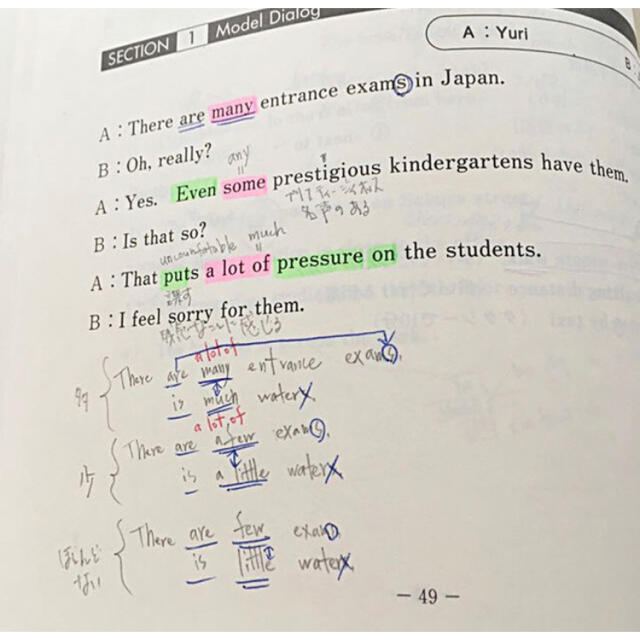 SECTION 1 Model Dialog
A : Yuri
B :
A : There are many entrance exams in Japan.
any
B : Oh, really?
A : Yes. Even some prestigious kindergartens have them.
名声のある
B : Is that so?
uncountable much
A : That puts a lot of pressure on the students.
課す
B : I feel sorry for them.
感じる
a lot of
多 There are many entrance exams.
is much water
a lot of
少 There are a few exams.
is a little water
ほとんどない There are few exams
is little water
— 49 —